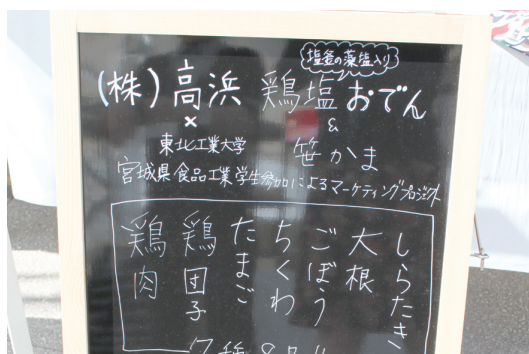 塩釜の藻塩入り
(株)高浜 鶏塩おでん
×
&
東北工業大学
笹かま
宮城県食品工業学生参加によるマーケティングプロジェクト
しらたき
大根
ごぼう
ちくわ
たまご
鶏団子
鶏肉